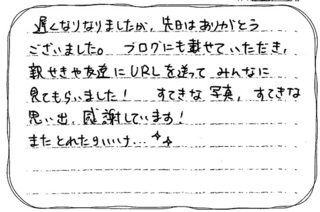 遅くなりなりましたが、先日はありがとう
ございました。 ブログにも載せていただき、
親せきや友達にURLを送って みんなに
見てもらいました! すてきな写真、すてきな
思い出、感謝しています!
また